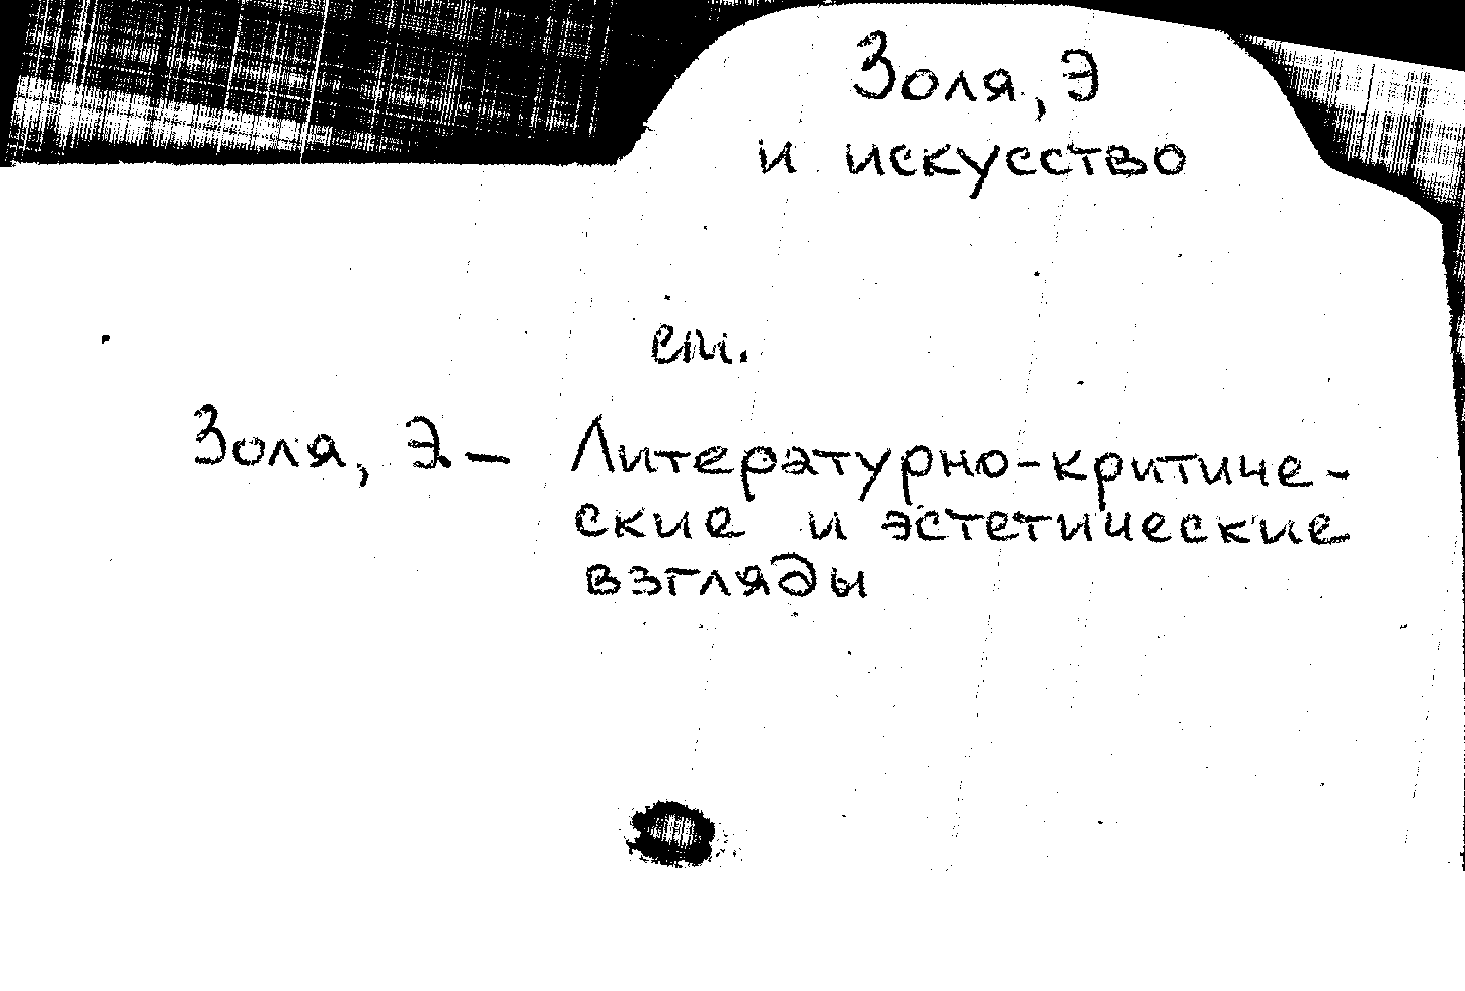 Золя, Э
и искусство
см.
Золя, Э. — Литературно-критиче-
ские и эстетические
взгляды